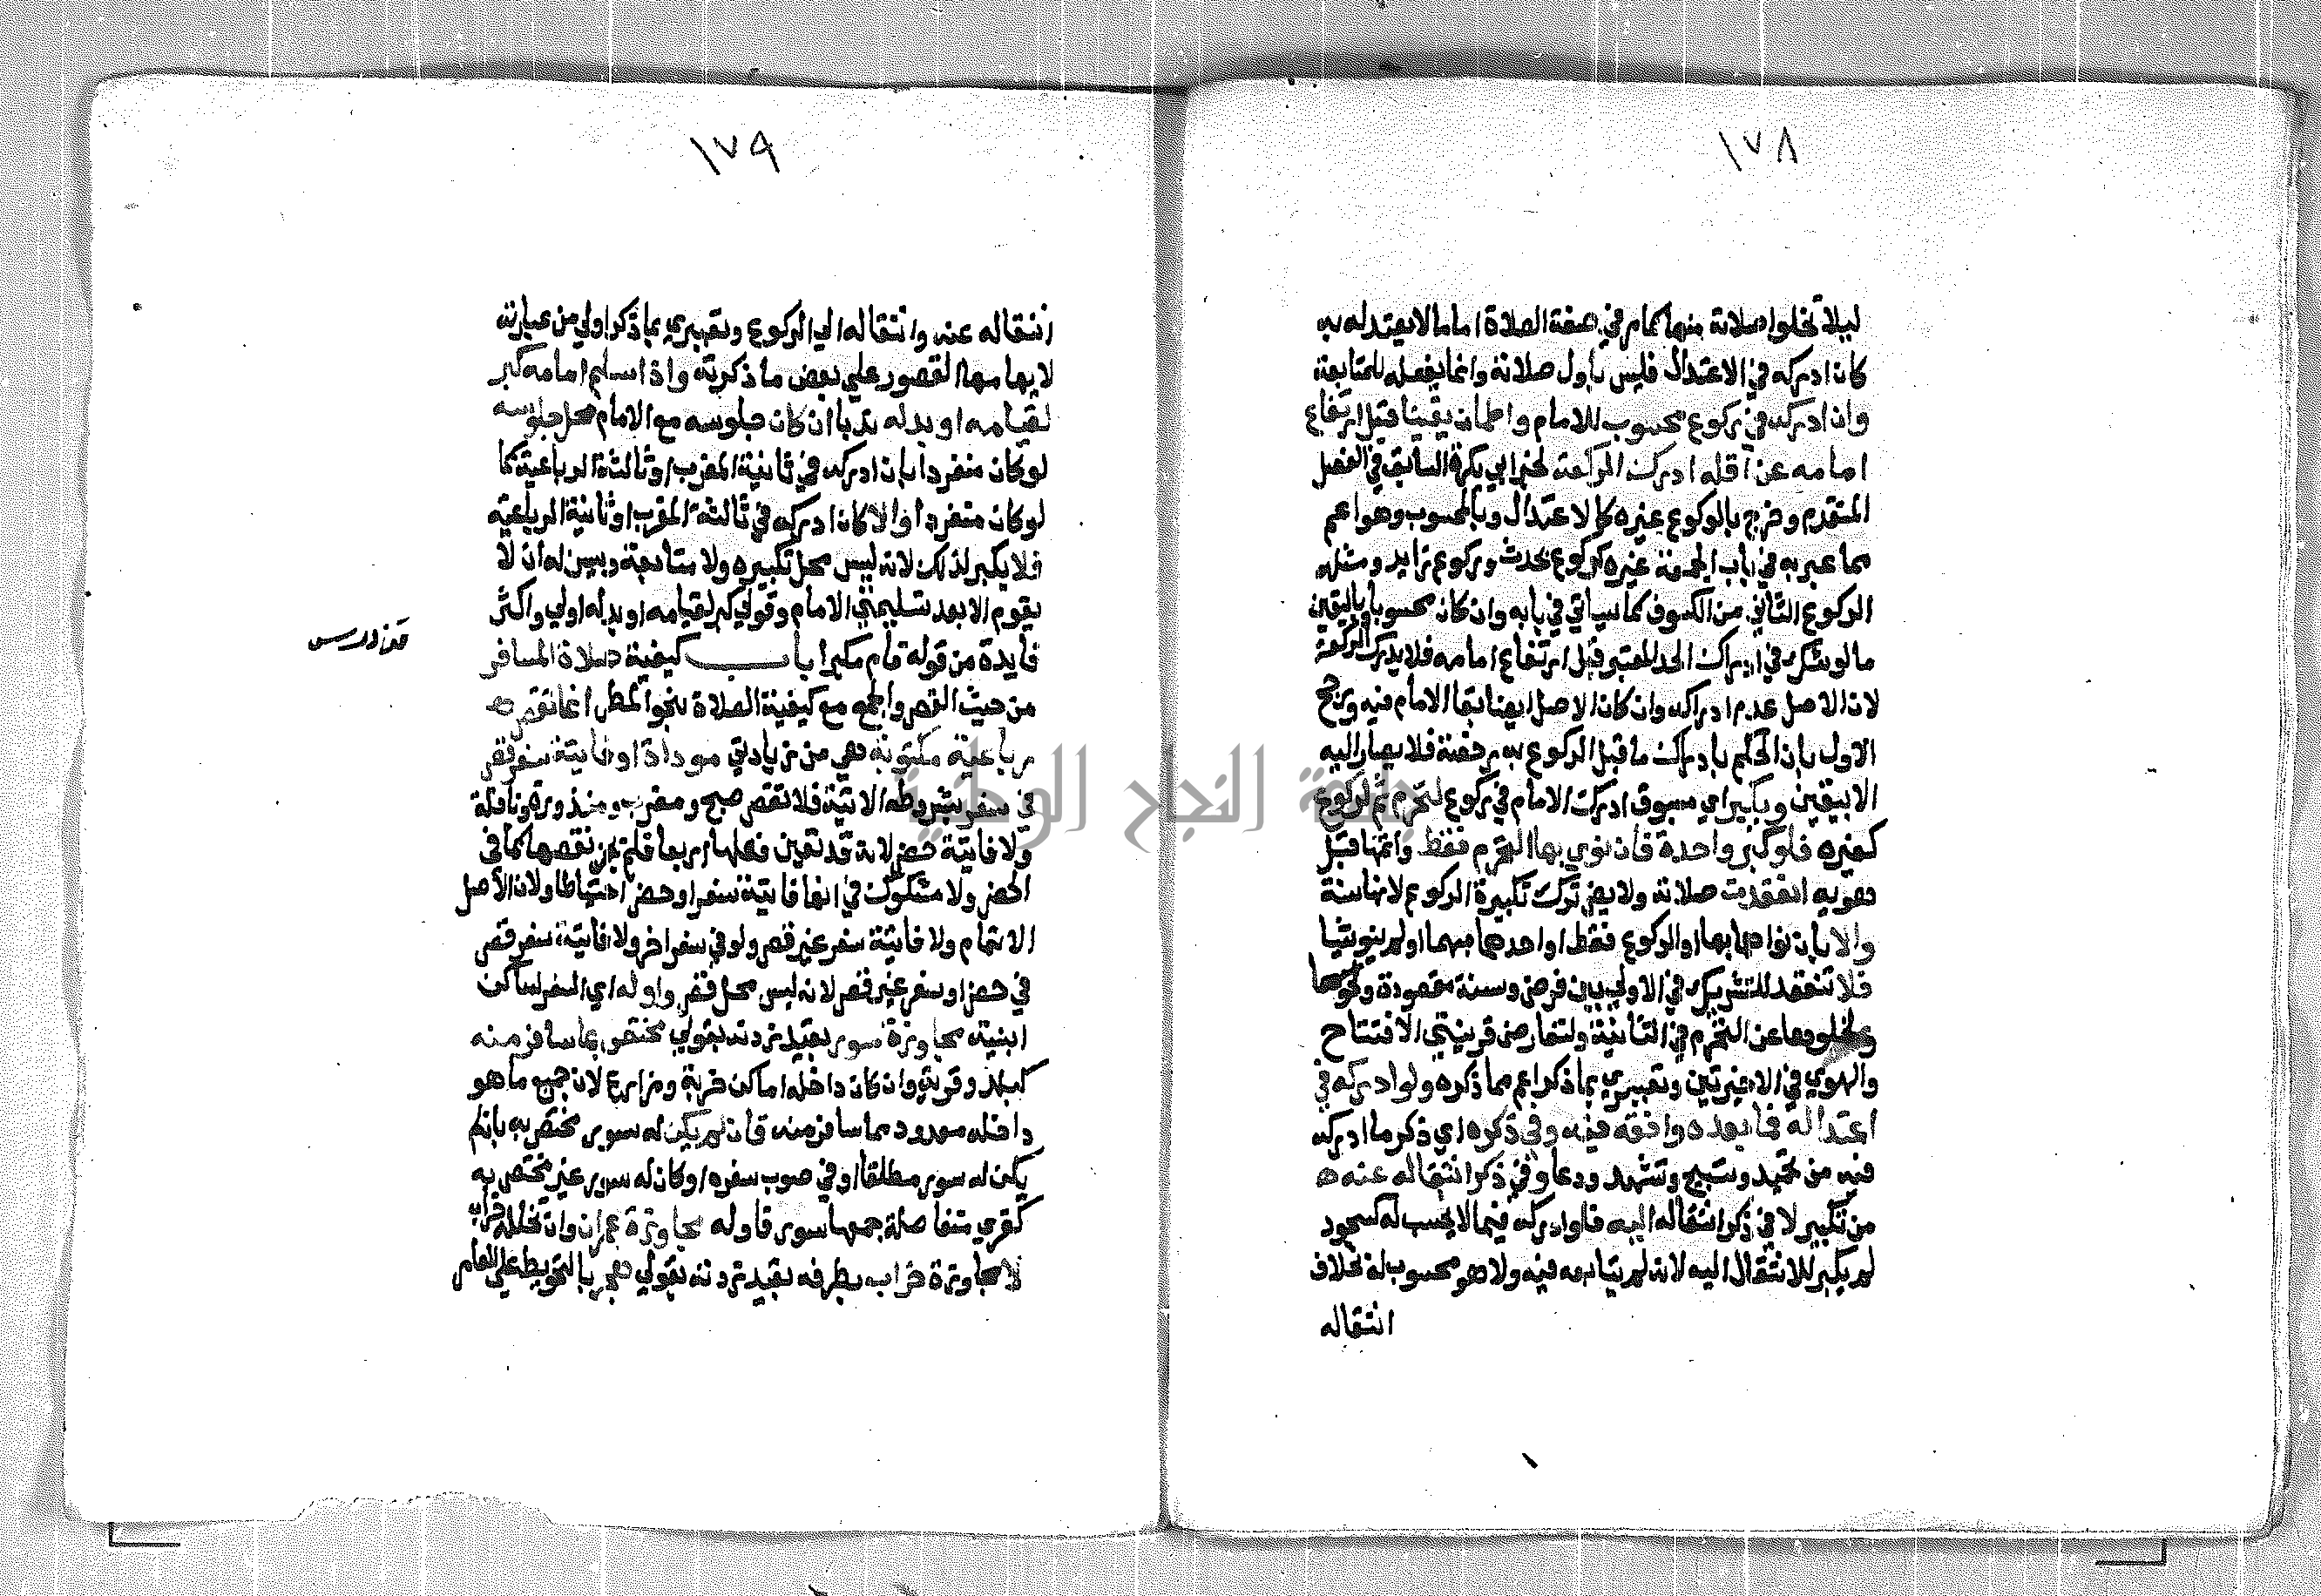 ١٧٨
ليلا تخلوا صلاته منها كما مر في صفة الصلاة اما ما لا يعتد له به
كان ادركه في الاعتدال فليس باول صلاته وانما يفعله للمتابعة
وان ادركه في ركوع محسوب للامام واطمان يقينا قبل ارتفاع
امامه عن اقله ادرك الركعة لخبر ابي بكرة السابق في الفصل
المتقدم وخرج بالركوع غيره كالاعتدال وبالمحسوب وهو اعم
مما عبر به في باب الجمعة غيره كركوع محدث وركوع زايد ومثله
الركوع الثاني من الكسوف كما سياتي في بابه وان كان محسوبا وباليقين
ما لو شك في ادراك الحد المعتبر قبل ارتفاع امامه فلا يدرك الركعة
لان الاصل عدم ادراكه وان كان الاصل ايضا بقا الامام فيه ورجح
الاول بان الحكم بادراك ما قبل الركوع به رخصة فلا يصار اليه
الا بيقين ويكبر اي مسبوق ادرك الامام في ركوع لتحرم ثم لركوع
كغيره فلو كبر واحدة فان نوي بها التحرم فقط واتمها قبل
هويه انعقدت صلاته ولا يضر ترك تكبيرة الركوع لانها سنة
والا بان نواهما بها او الركوع فقط او احدهما مبهما او لم ينو شيا
فلا تنعقد للتشريك في الاولي بين فرض وسنة مقصودة ولخوهما
ولخلوها عن التحرم في الثانية ولتعارض قرينتي الافتتاح
والهوي في الاخيرتين وتعبيري بما ذكر اعم مما ذكره ولو ادركه في
اعتداله فما بعده وافقه فيه وفي ذكره اي ذكر ما ادركه
فيه من تحميد وتسبيح وتشهد ودعا وفي ذكر انتقاله عنه
من تكبير لا في ذكر انتقاله اليه فلو ادركه فيما لا يحسب له كسجود
لم يكبر للانتقال اليه لانه لم يتابعه فيه ولا هو محسوب له بخلاف
انتقاله
١٧٩
انتقاله عنه وانتقاله الي الركوع وتعبيري بما ذكر اولي من عبارته
لايهامها القصور علي بعض ما ذكرته واذا سلم امامه كبر
لقيامه او بدله ندبا ان كان جلوسه مع الامام محل جلوسه
لو كان منفردا بان ادركه في ثانية المغرب او ثالثة الرباعية كما
لو كان منفردا والا كان ادركه في ثالثة المغرب او ثانية الرباعية
فلا يكبر لذلك لانه ليس محل تكبيره ولا متابعة ويسن له ان لا
يقوم الا بعد تسليمتي الامام وقولي كبر لقيامه او بدله اولي واكثر
فايدة من قوله قام مكبرا باب كيفية صلاة المسافر
من حيث القصر والجمع مع كيفية الصلاة بنحو المطر انما تقصر
رباعية مكتوبة هي من زيادتي موداة او فايتة سفر قصر
في سفر بشروطه الاتية فلا تقصر صبح ومغرب ومنذورة ونافلة
ولا فايتة حضر لانه قد تعين فعلها اربعا فلم يجز نقصها كما في
الحضر ولا مشكوك في انها فايتة سفر او حضر احتياطا ولان الاصل
الاتمام ولا فايتة سفر غير قصر ولو في سفر اخر ولا فايتة سفر قصر
في حضر او سفر غير قصر لانه ليس محل قصر واوله اي السفر لساكن
ابنية مجاوزة سور بقيد زدته بقولي مختص بما سافر منه
كبلد وقرية وان كان داخله اماكن خربة ومزارع لان جميع ما هو
داخله معدود مما سافر منه فان لم يكن له سور مختص به بان لم
يكن له سور مطلقا او في صوب سفره او كان له سور غير مختص به
كقري متفاصلة جمعها سور فاوله مجاوزة عمران وان تخلله خراب
لا مجاوزة خراب بطرفه بقيد زدته بقولي هجر بالتحويط علي العامر